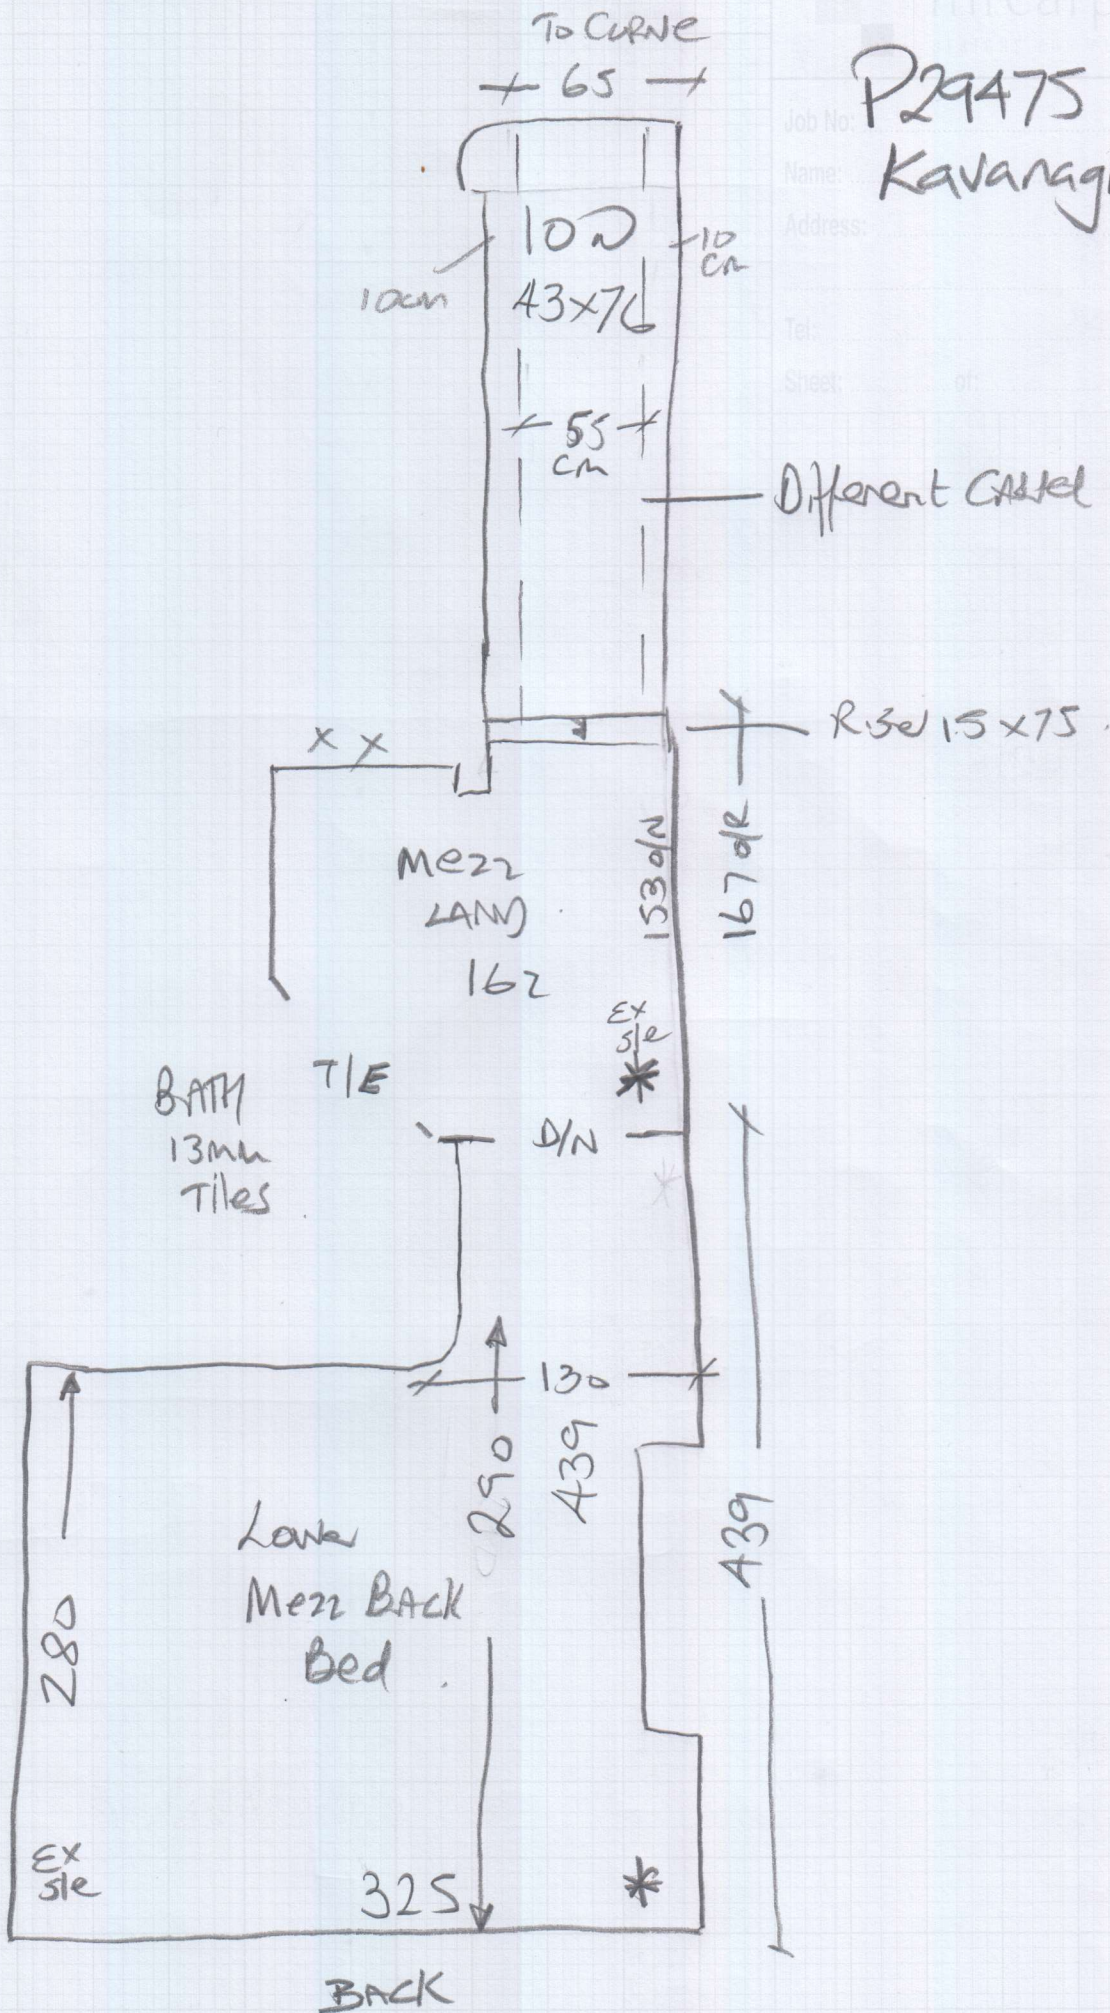 To CURVE
65
P29475
Kavanag
Job No:
Name:
Address:
Tel:
Sheet: of:
10cm
10
43x76
10
cm
55
cm
Different
15 x 75
x x
Mezz
LAND
162
153 o/N
167 o/R
Ex
s/e
*
BATH
13mm
Tiles
T/E
D/N
*
130
290
439
439
280
Lower
Mezz BACK
Bed
Ex
s/e
325
*
BACK